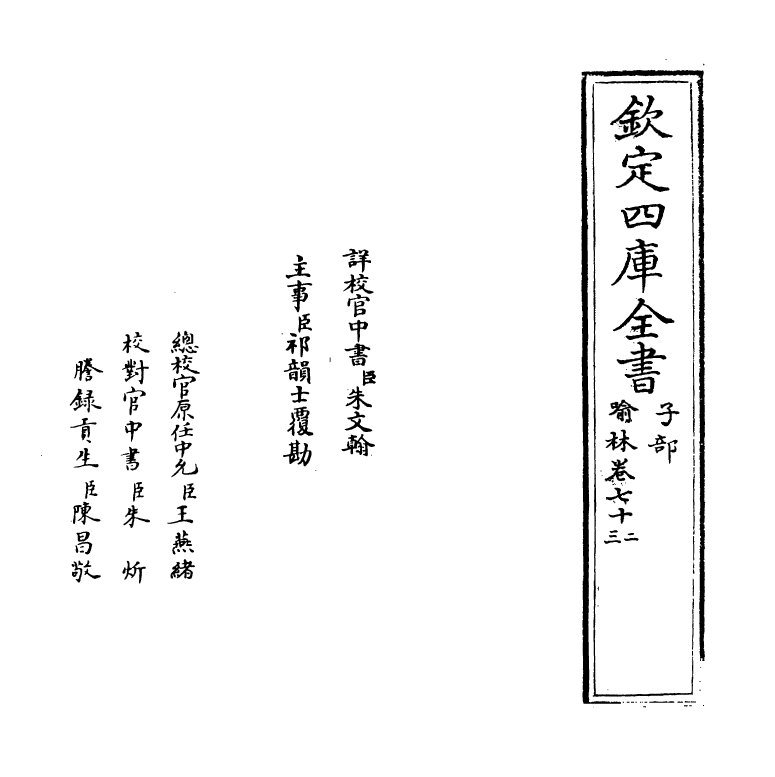 欽定四庫全書
子部
喻林卷七十二三
詳校官中書臣朱文翰
主事臣祁韻士覆勘
總校官原任中允臣王燕緒
校對官中書臣朱炘
謄録貢生臣陳昌敬